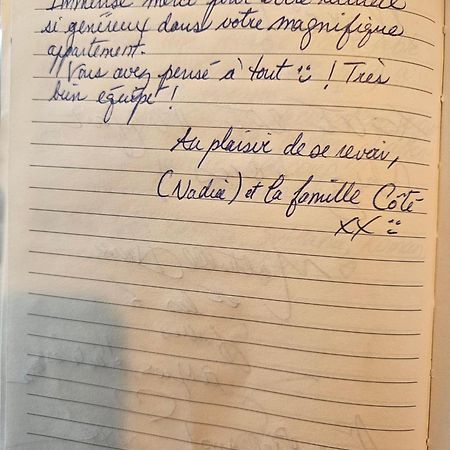 Immense merci pour votre accueil
si généreux dans votre magnifique
appartement.
Vous avez pensé à tout ! Très
bien équipé !
Au plaisir de se revoir,
(Nadia) et la famille Côté
XX